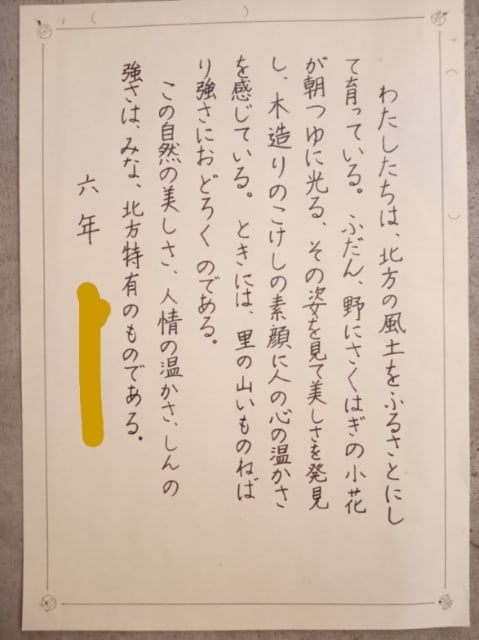 わたしたちは、北方の風土をふるさとにし
て育っている。ふだん、野にさくはぎの小花
が朝つゆに光る、その姿を見て美しさを発見
し、木造りのこけしの素顔に人の心の温かさ
を感じている。ときには、里の山いものねば
り強さにおどろくのである。
この自然の美しさ、人情の温かさ、しんの
強さは、みな、北方特有のものである。
六年